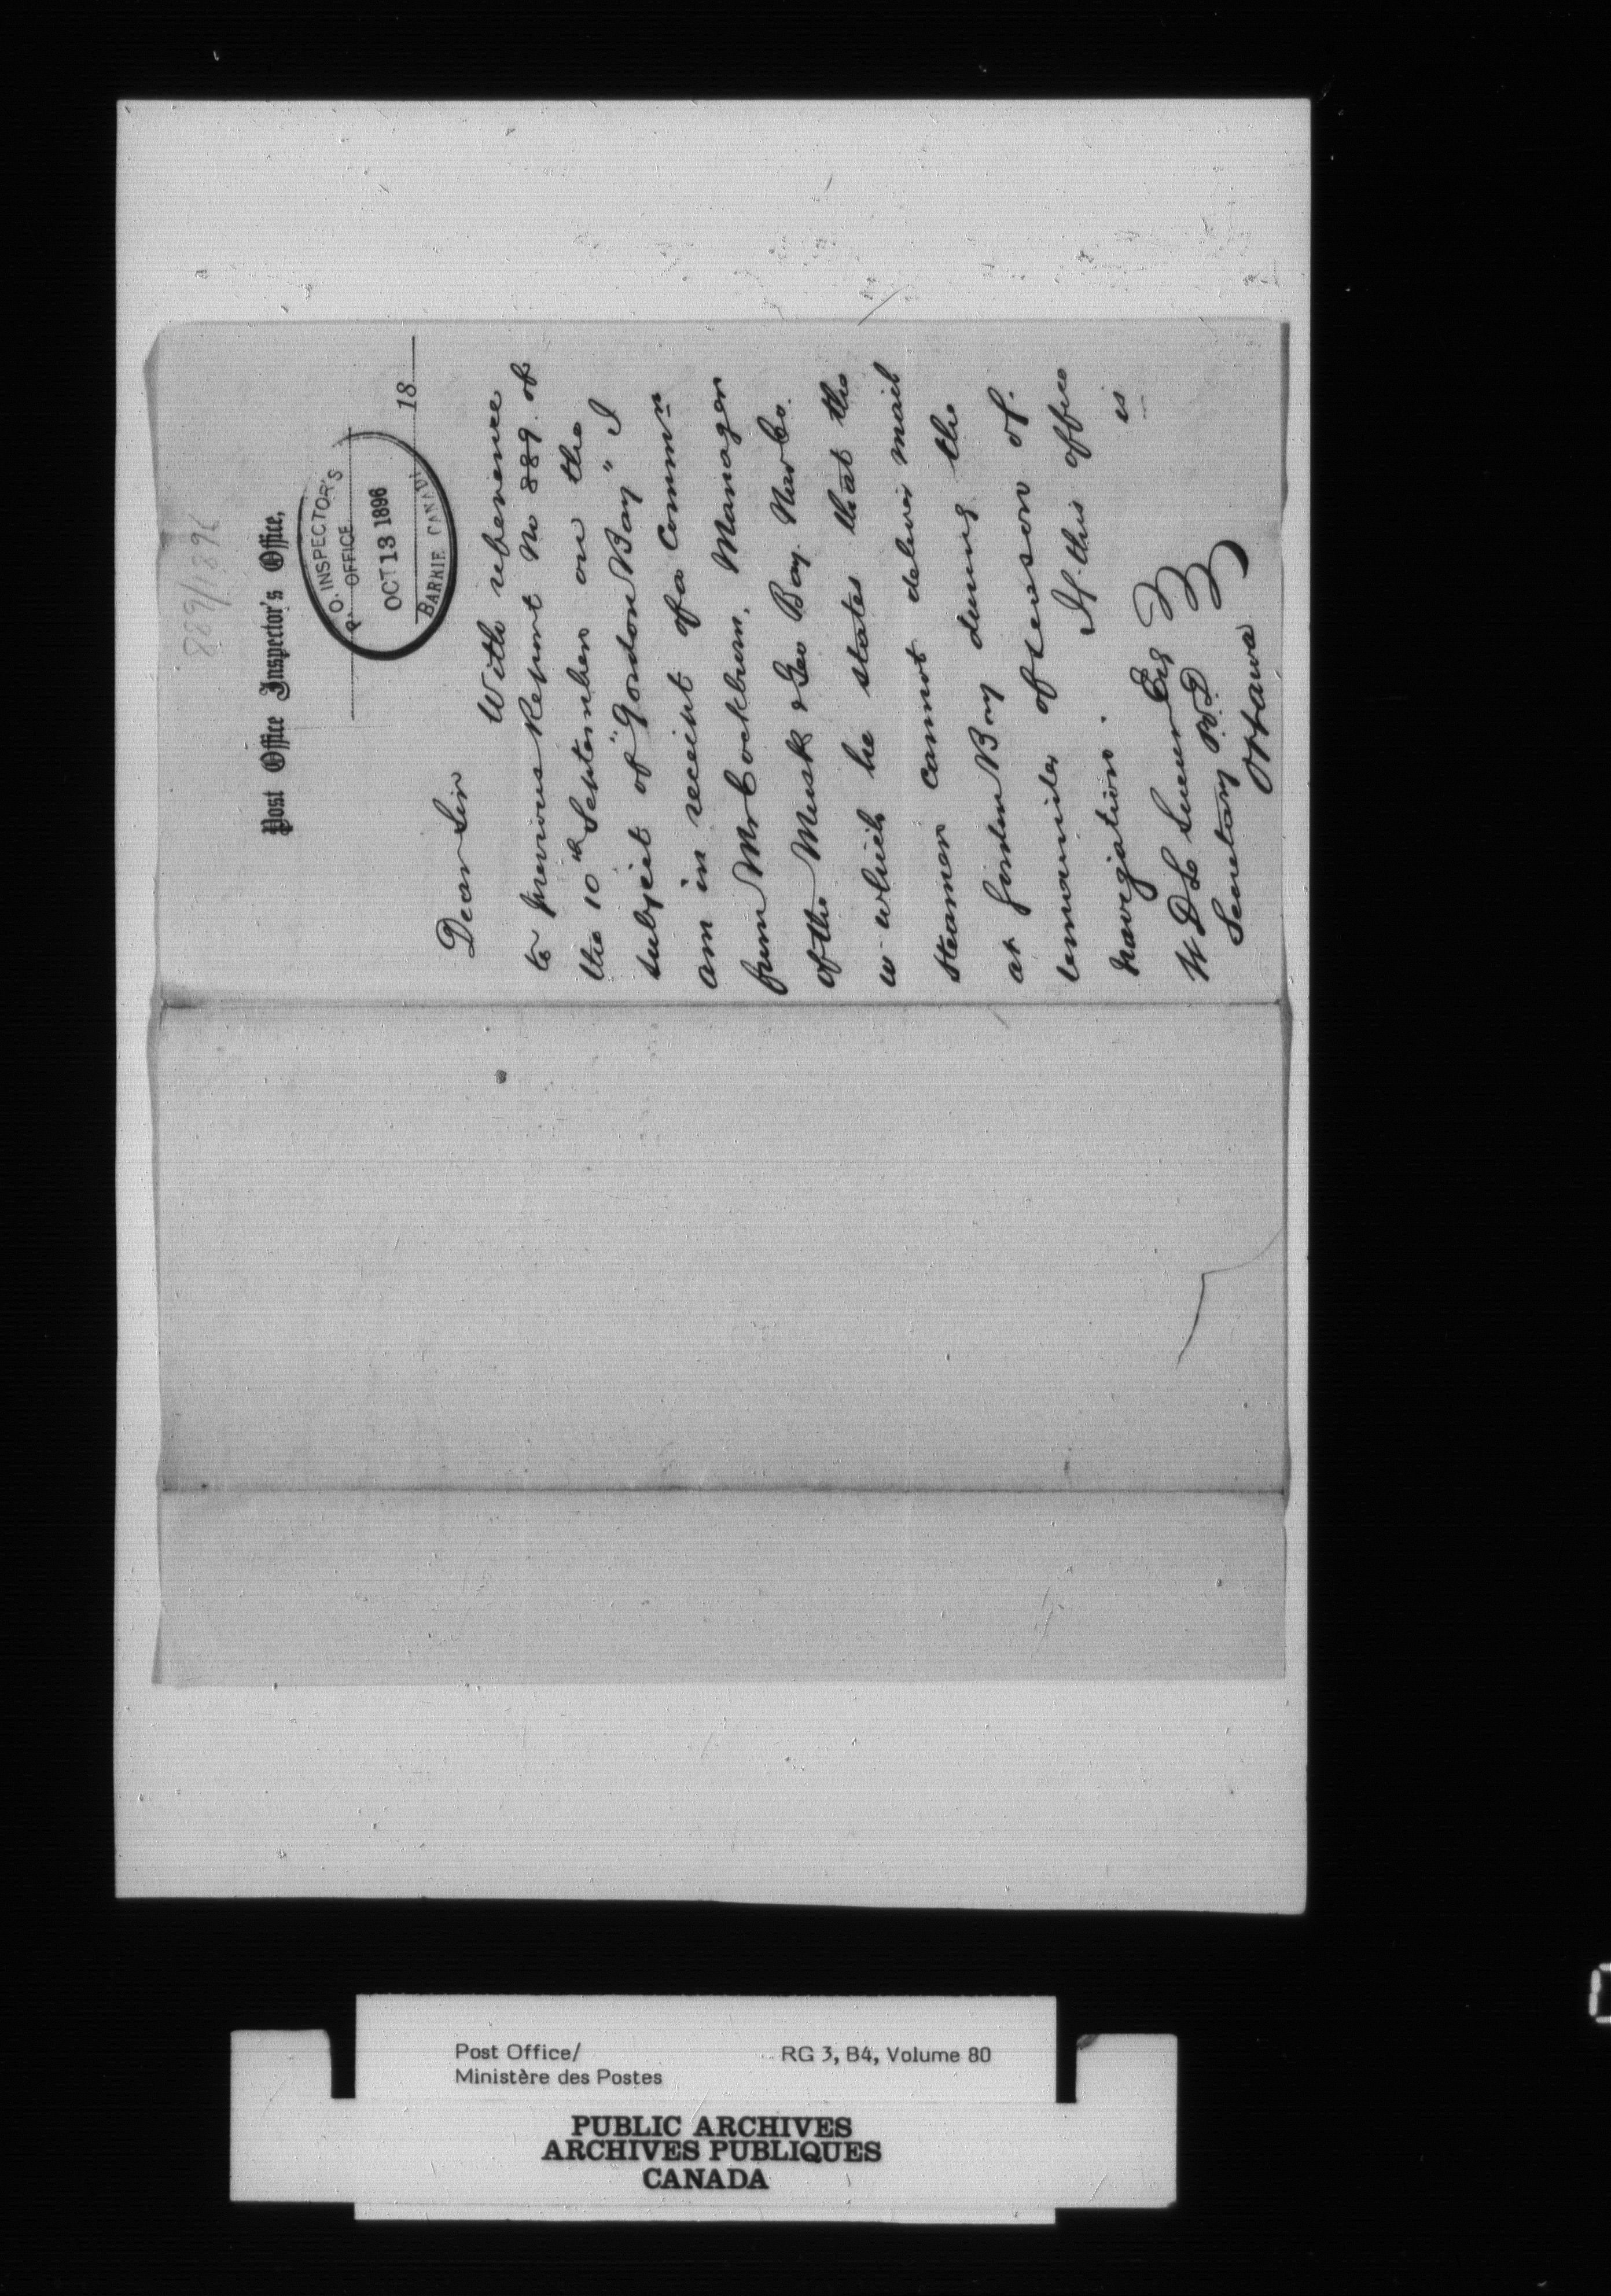 889/1896
Post Office Inspector's Office,
P. O. INSPECTOR'S
P. OFFICE
OCT 13 1896
BARRIE CANADA
18
Dear Sir
With reference
to previous Report No 889 of
the 10th September on the
subject of "Gordon Bay" I
am in receipt of a Commn
from Mr Cockburn, Manager
of the Musk & Geo Bay Nav Co.
in which he states that the
steamer cannot deliver mail
at Gordon Bay during the
remainder of season of
navigation. If this office
is
W D Le Sueur Esq
Secretary P.O.D
Ottawa
Post Office/
Ministère des Postes
RG 3, B4, Volume 80
PUBLIC ARCHIVES
ARCHIVES PUBLIQUES
CANADA